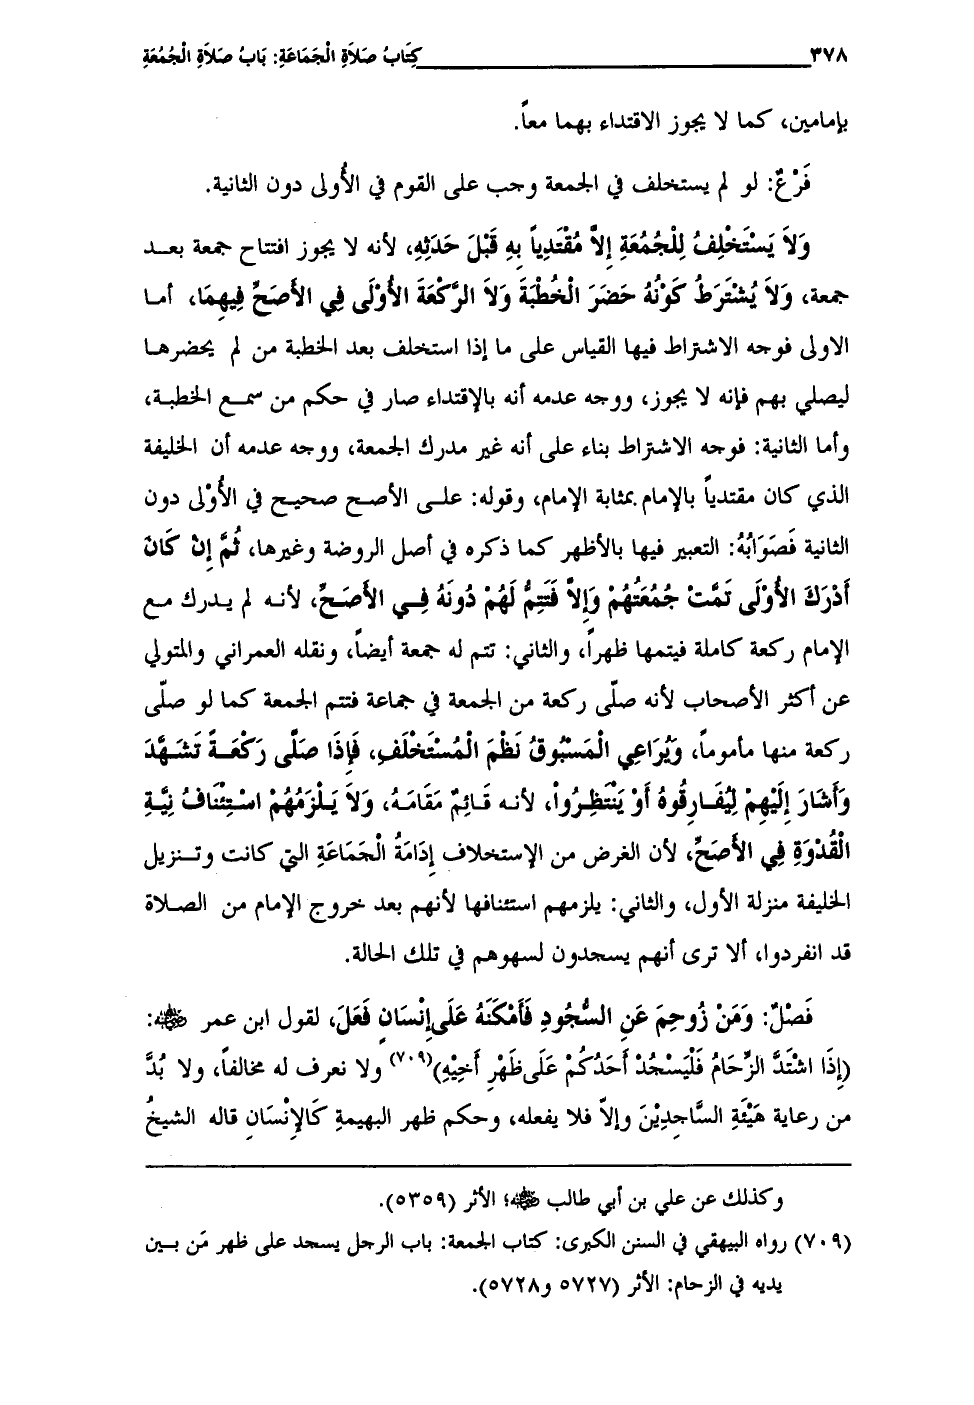 ٣٧٨ كِتَابُ صَلاَةِ الْجَمَاعَةِ: بَابُ صَلاَةِ الْجُمُعَةِ
بإمامين، كما لا يجوز الاقتداء بهما معاً.
فَرْعٌ: لو لم يستخلف في الجمعة وجب على القوم في الأُولى دون الثانية.
وَلاَ يَسْتَخْلِفُ لِلْجُمُعَةِ إِلاَّ مُقْتَدِياً بِهِ قَبْلَ حَدَثِهِ، لأنه لا يجوز افتتاح جمعة بعد
جمعة، وَلاَ يُشْتَرَطُ كَوْنُهُ حَضَرَ الْخُطْبَةَ وَلاَ الرَّكْعَةَ الأُوْلَى فِي الأَصَحِّ فِيهِمَا، أما
الاولى فوجه الاشتراط فيها القياس على ما إذا استخلف بعد الخطبة من لم يحضرها
ليصلي بهم فإنه لا يجوز، ووجه عدمه أنه بالإقتداء صار في حكم من سمع الخطبة،
وأما الثانية: فوجه الاشتراط بناء على أنه غير مدرك الجمعة، ووجه عدمه أن الخليفة
الذي كان مقتدياً بالإمام بمثابة الإمام، وقوله: على الأصح صحيح في الأُوْلى دون
الثانية فَصَوَابُهُ: التعبير فيها بالأظهر كما ذكره في أصل الروضة وغيرها، ثُمَّ إِنْ كَانَ
أَدْرَكَ الأُوْلَى تَمَّتْ جُمُعَتُهُمْ وَإِلاَّ فَتَتِمُّ لَهُمْ دُونَهُ فِي الأَصَحِّ، لأنه لم يدرك مع
الإمام ركعة كاملة فيتمها ظهراً، والثاني: تتم له جمعة أيضاً، ونقله العمراني والمتولي
عن أكثر الأصحاب لأنه صلّى ركعة من الجمعة في جماعة فتتم الجمعة كما لو صلّى
ركعة منها مأموماً، وَيُرَاعِي الْمَسْبُوقُ نَظْمَ الْمُسْتَخْلَفِ، فَإِذَا صَلَّى رَكْعَةً تَشَهَّدَ
وَأَشَارَ إِلَيْهِمْ لِيُفَارِقُوهُ أَوْ يَنْتَظِرُوا، لأنه قَائِمٌ مَقَامَهُ، وَلاَ يَلْزَمُهُمْ اسْتِئْنَافُ نِيَّةِ
الْقُدْوَةِ فِي الأَصَحِّ، لأن الغرض من الإستخلاف إِدَامَةُ الْجَمَاعَةِ التي كانت وتنزيل
الخليفة منزلة الأول، والثاني: يلزمهم استئنافها لأنهم بعد خروج الإمام من الصلاة
قد انفردوا، ألا ترى أنهم يسجدون لسهوهم في تلك الحالة.
فَصْلٌ: وَمَنْ زُوحِمَ عَنِ السُّجُودِ فَأَمْكَنَهُ عَلَى إِنْسَانٍ فَعَلَ، لقول ابن عمر ﷺ:
(إِذَا اشْتَدَّ الزِّحَامُ فَلْيَسْجُدْ أَحَدُكُمْ عَلَى ظَهْرِ أَخِيْهِ)(٧٠٩) ولا نعرف له مخالفاً، ولا بُدَّ
من رعاية هَيْئَةِ السَّاجِدِيْنَ وإلاّ فلا يفعله، وحكم ظهر البهيمةِ كَالإِنْسَانِ قاله الشيخُ
وكذلك عن علي بن أبي طالب ﷺ؛ الأثر (٥٣٥٩).
(٧٠٩) رواه البيهقي في السنن الكبرى: كتاب الجمعة: باب الرجل يسجد على ظهر مَن بين
يديه في الزحام: الأثر (٥٧٢٧ و٥٧٢٨).